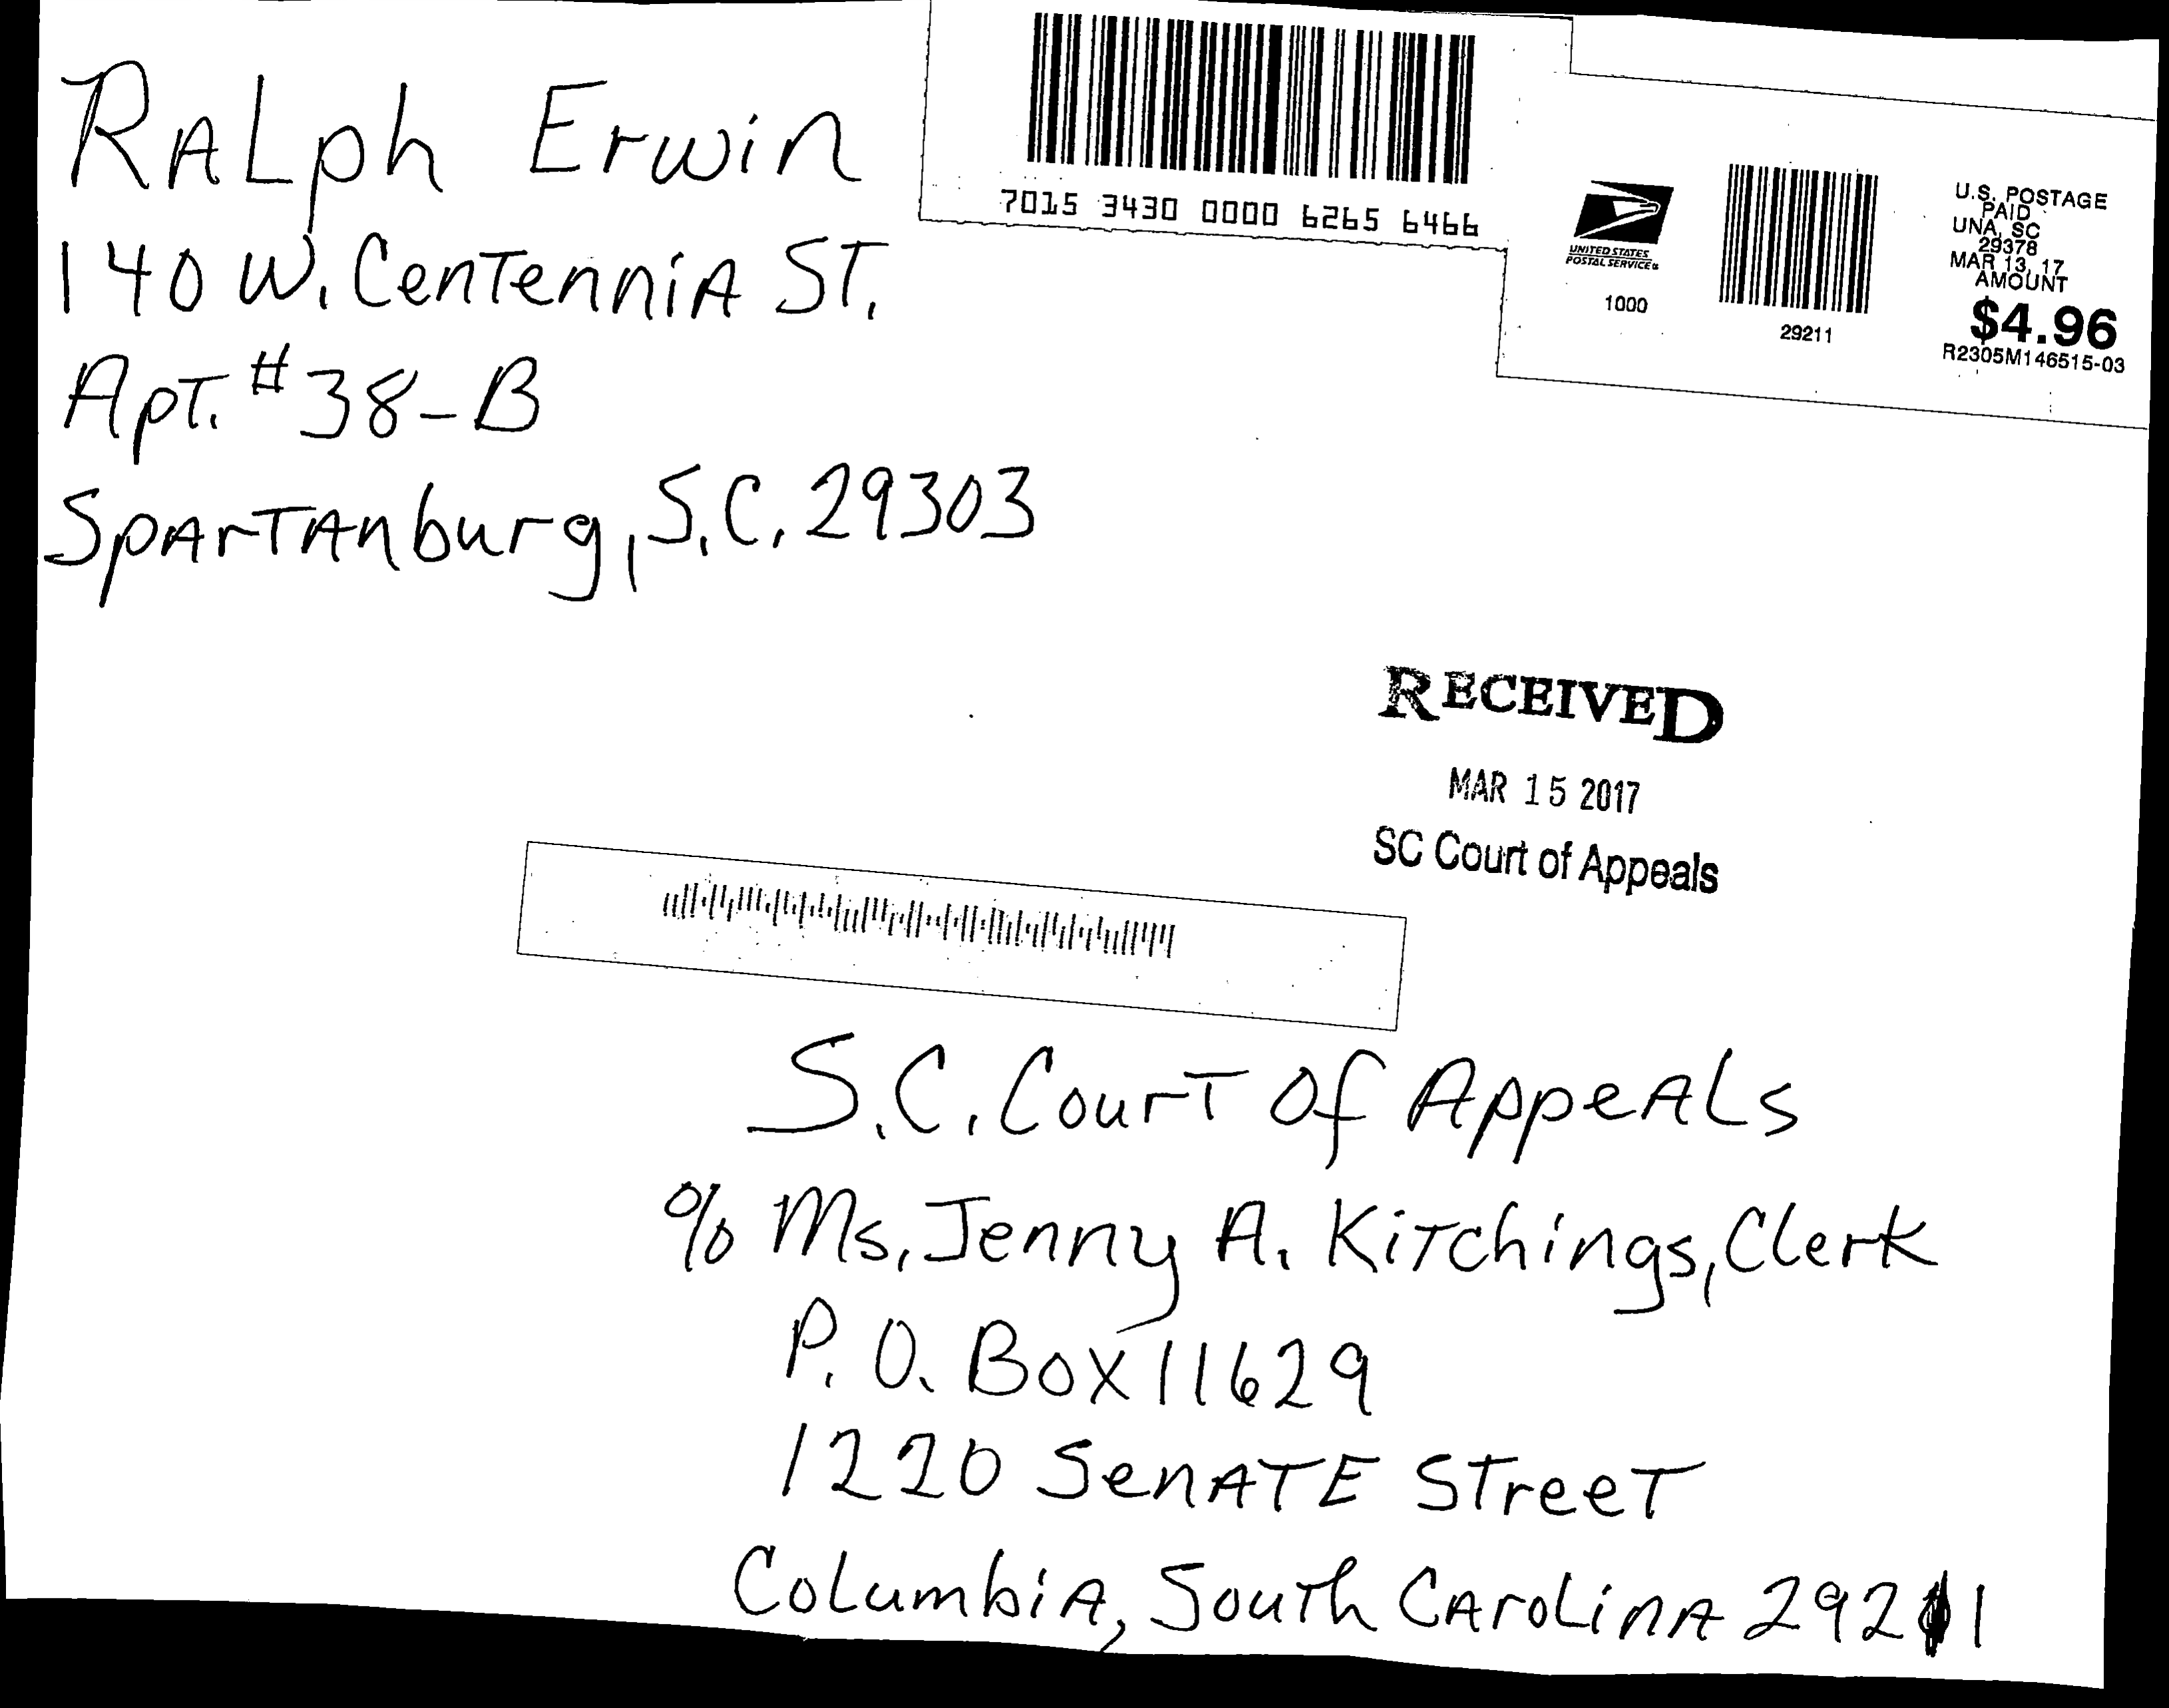 RALph Erwin
140 W. CenTenniA ST.
ApT. #38-B
SpArTAnburg, S.C. 29303
7015 3430 0000 6265 6466
UNITED STATES
POSTAL SERVICE®
1000
29211
U.S. POSTAGE
PAID
UNA, SC
29378
MAR 13, 17
AMOUNT
$4.96
R2305M146515-03
RECEIVED
MAR 15 2017
SC Court of Appeals
S.C. CourT Of AppeALs
% Ms. Jenny A. KiTchings, Clerk
P.O. Box 11629
1220 SenATE STreeT
ColumbiA, South CAroLinA 29211